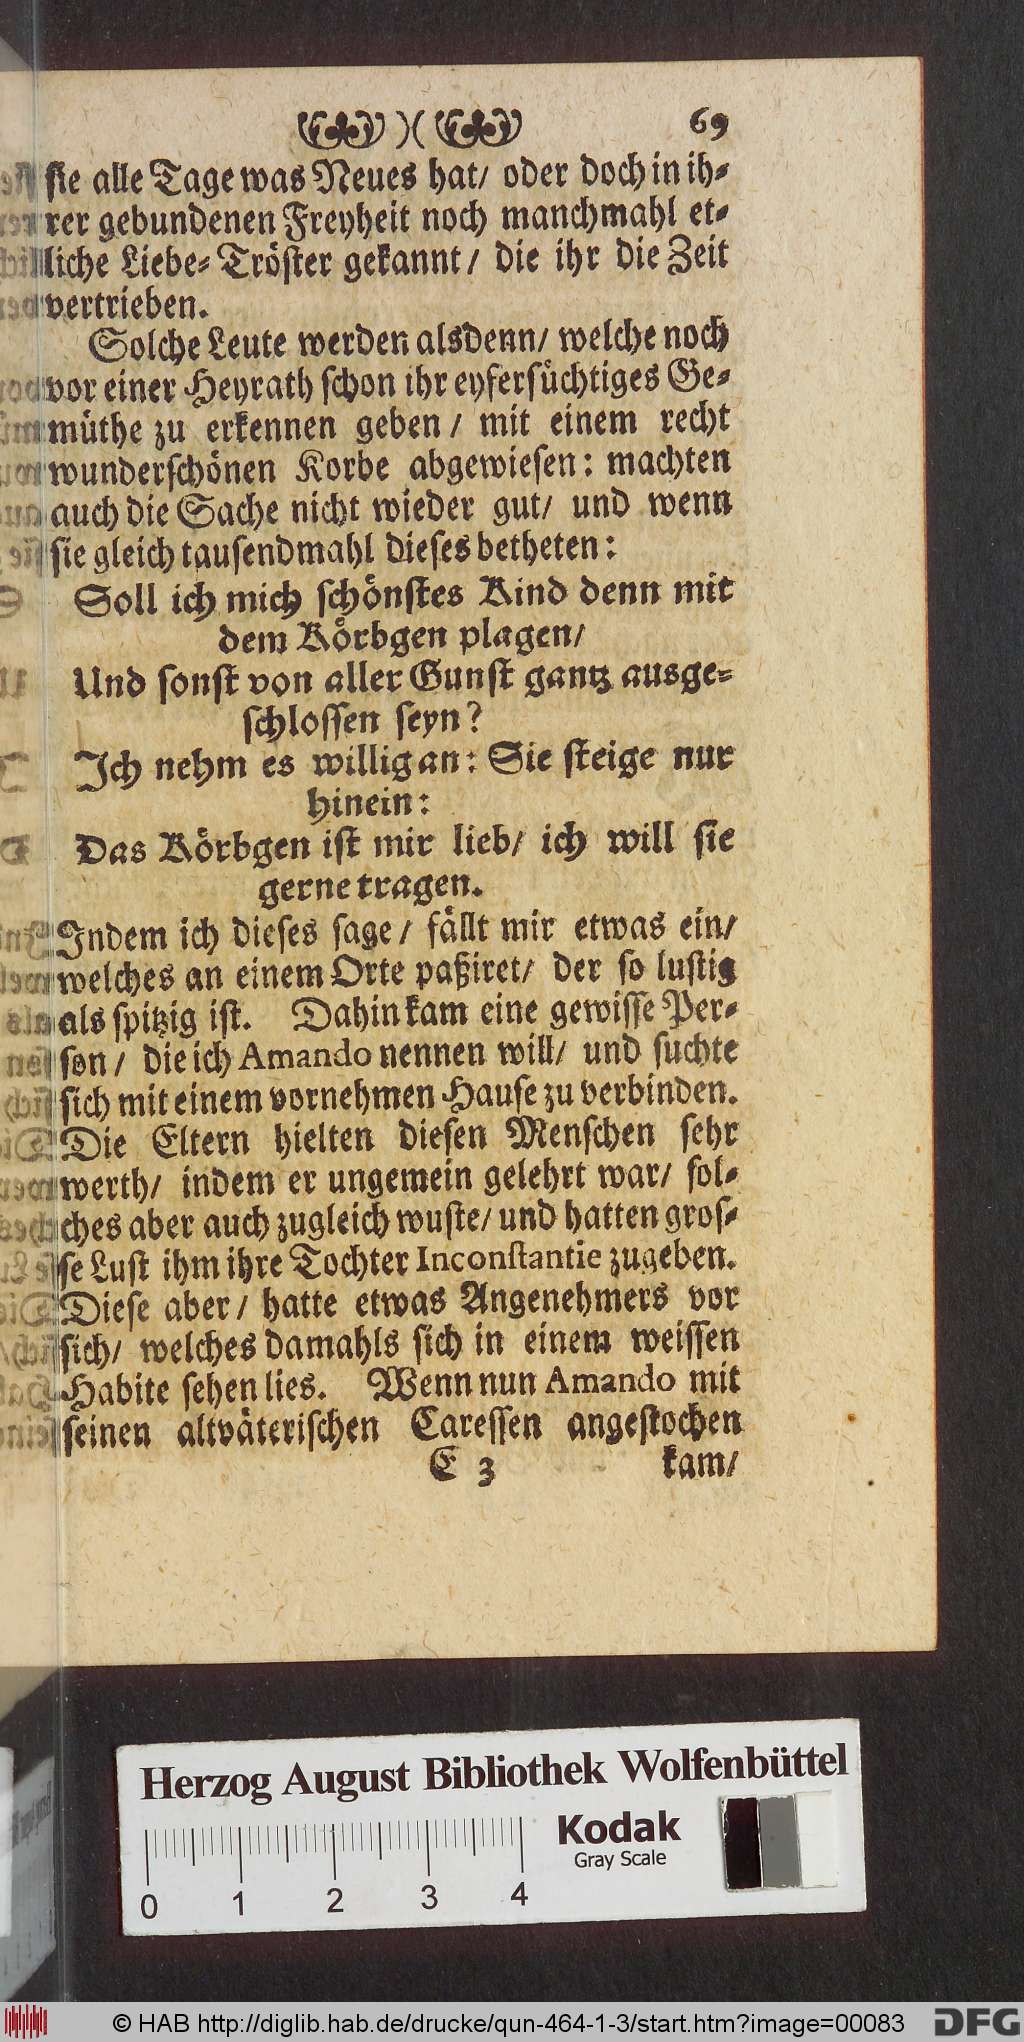 )( 69
sie alle Tage was Neues hat/ oder doch in ih-
rer gebundenen Freyheit noch manchmahl et-
liche Liebe-Tröster gekannt/ die ihr die Zeit
vertrieben.
Solche Leute werden alsdenn/ welche noch
vor einer Heyrath schon ihr eyfersüchtiges Ge-
müthe zu erkennen geben/ mit einem recht
wunderschönen Korbe abgewiesen: machten
auch die Sache nicht wieder gut/ und wenn
sie gleich tausendmahl dieses betheten:
Soll ich mich schönstes Kind denn mit
dem Körbgen plagen/
Und sonst von aller Gunst gantz ausge-
schlossen seyn?
Ich nehm es willig an: Sie steige nur
hinein:
Das Körbgen ist mir lieb/ ich will sie
gerne tragen.
Indem ich dieses sage/ fällt mir etwas ein/
welches an einem Orte paßiret/ der so lustig
als spitzig ist. Dahin kam eine gewisse Per-
son/ die ich Amando nennen will/ und suchte
sich mit einem vornehmen Hause zu verbinden.
Die Eltern hielten diesen Menschen sehr
werth/ indem er ungemein gelehrt war/ sol-
ches aber auch zugleich wuste/ und hatten gros-
se Lust ihm ihre Tochter Inconstantie zugeben.
Diese aber/ hatte etwas Angenehmers vor
sich/ welches damahls sich in einem weissen
Habite sehen lies. Wenn nun Amando mit
seinen altväterischen Caressen angestochen
E 3 kam/
Herzog August Bibliothek Wolfenbüttel
Kodak
Gray Scale
0 1 2 3 4
© HAB http://diglib.hab.de/drucke/qun-464-1-3/start.htm?image=00083 DFG